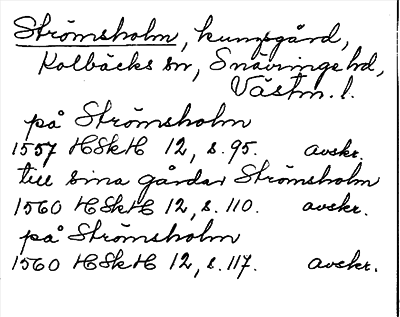 Strömsholm, kungsgård,
Kolbäcks sn, Snävringe hd,
Västm. l.
på Strömsholm
1557 HSkH 12, s. 95. avskr.
till sina gårdar Strömsholm
1560 HSkH 12, s. 110. avskr.
på Strömsholm
1560 HSkH 12, s. 117. avskr.